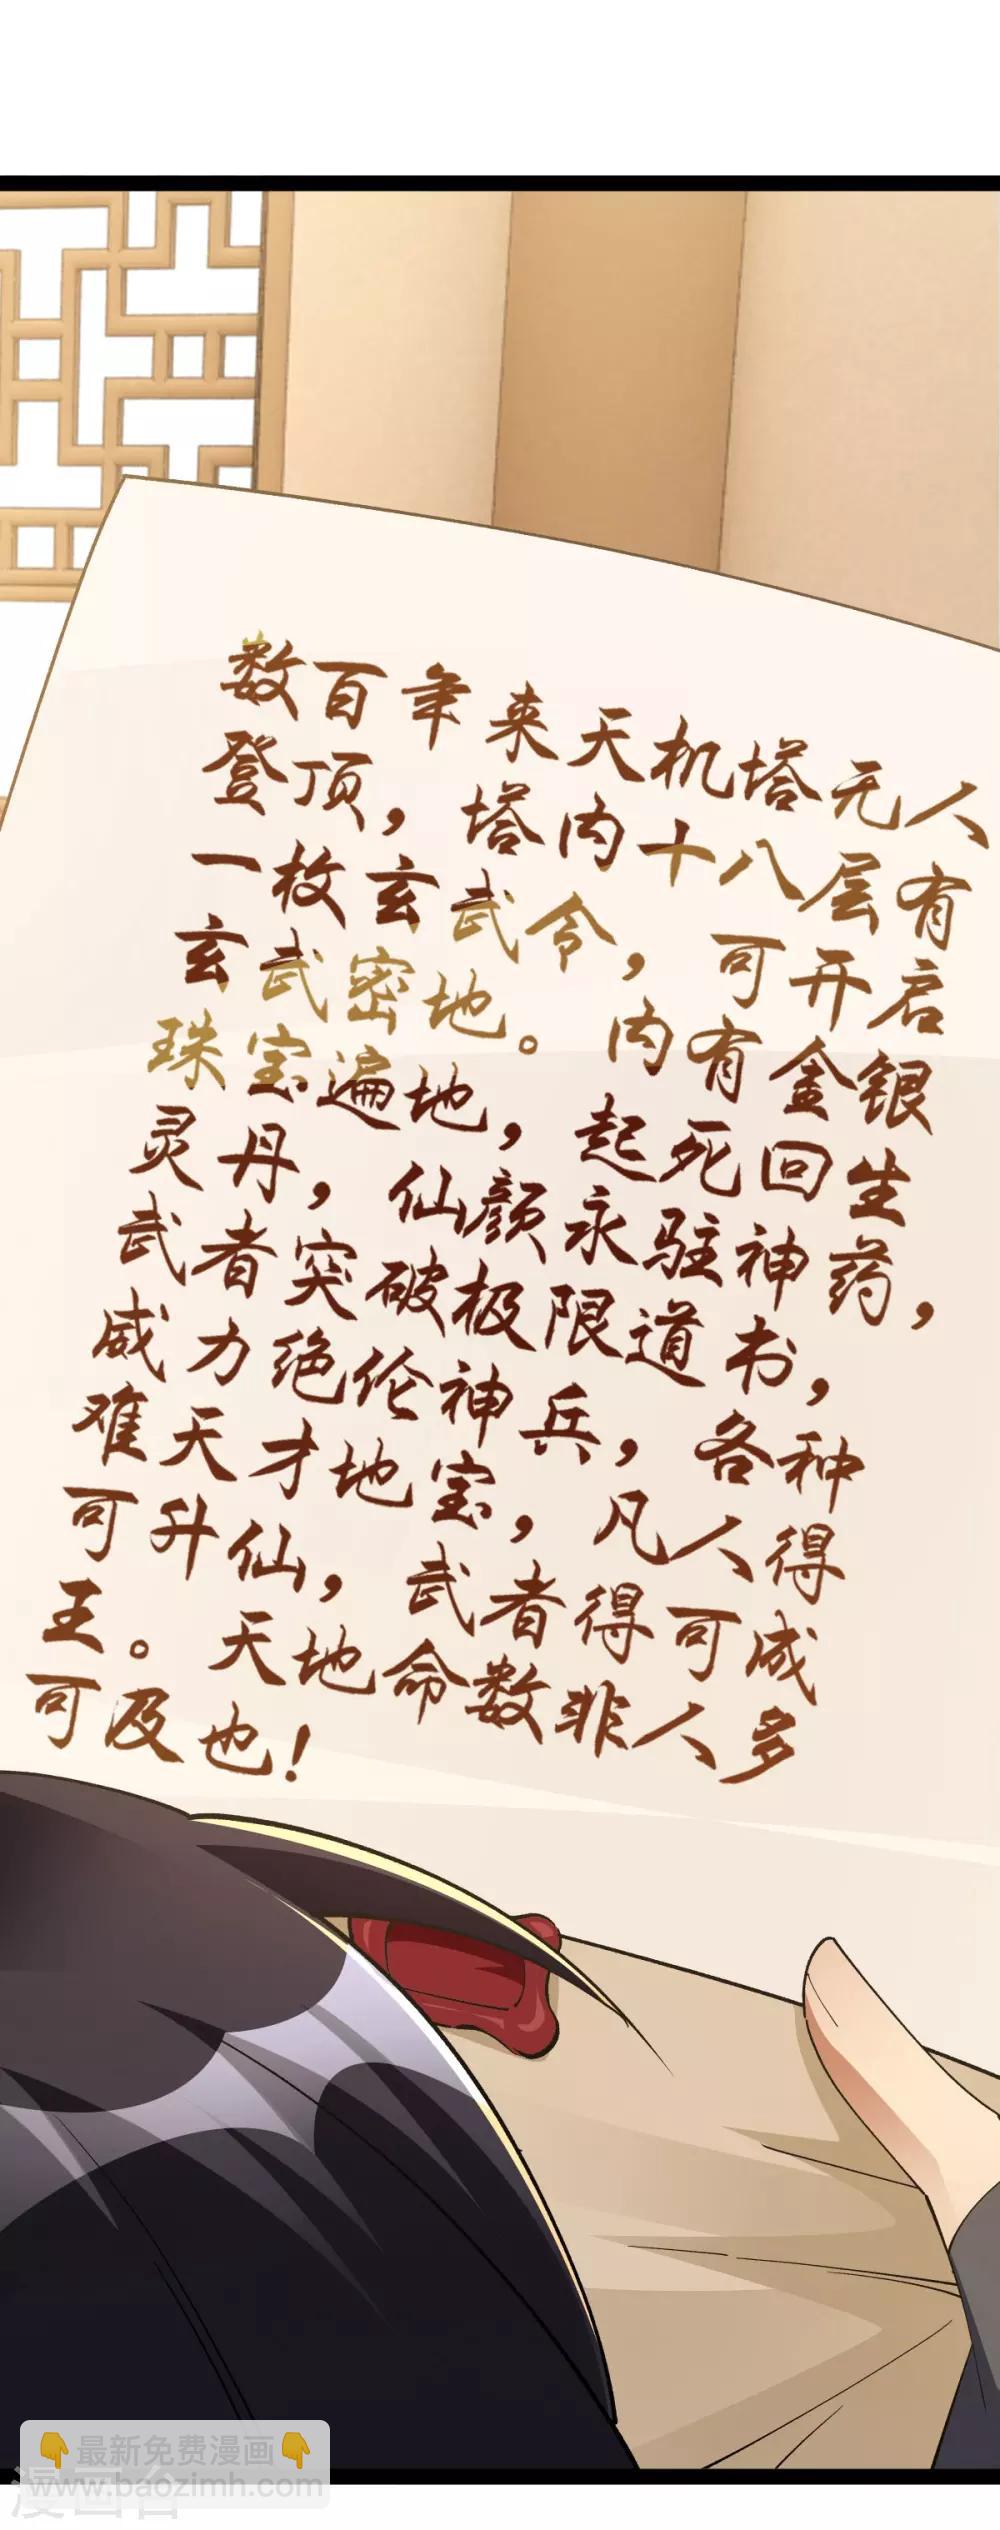 数百年来天机塔无人
登顶，塔内十八层有
一枚玄武令，可开启
玄武密地。内有金银
珠宝遍地，起死回生
灵丹，仙颜永驻神药，
武者突破极限道书，
威力绝伦神兵，各种
难天才地宝，凡人得
可升仙，武者得可成
王。天地命数非人多
可及也！
👇最新免费漫画👇
www.baozimh.com
漫画台